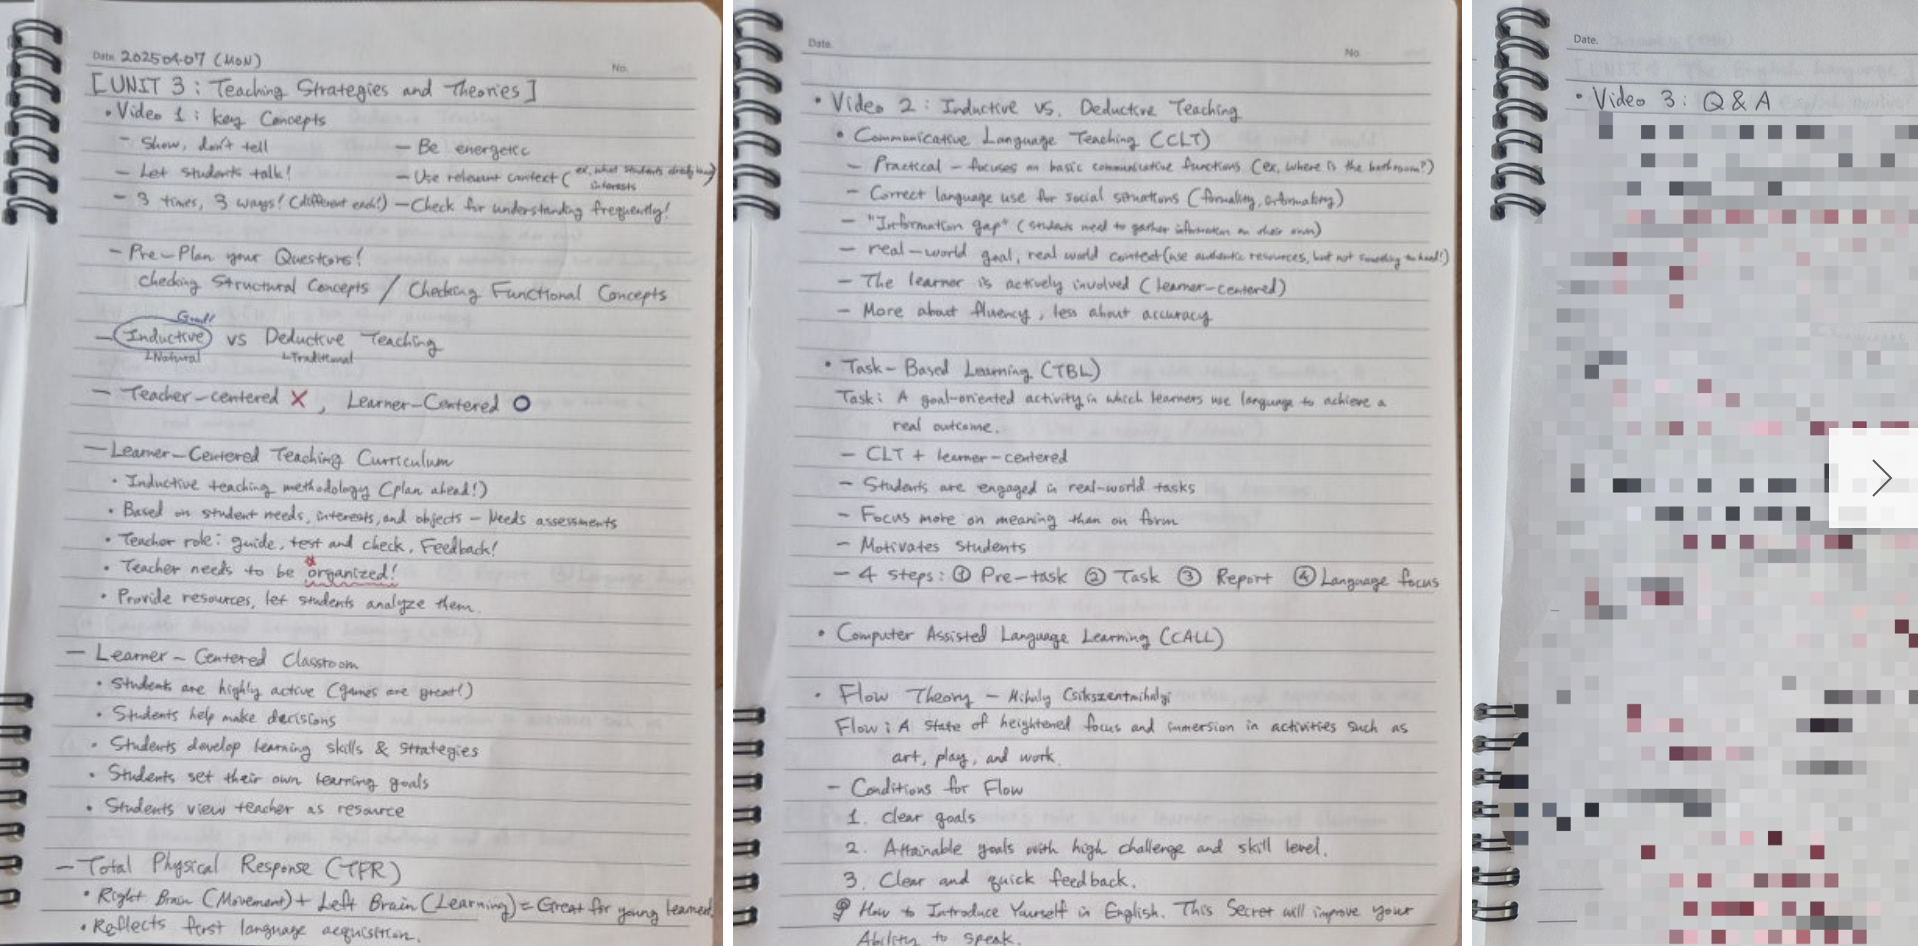 Date. 20250407 (MON)
No.
[UNIT 3 : Teaching Strategies and Theories]
• Video 1 : Key Concepts
- Show, don't tell
- Be energetic
- Let students talk!
- Use relevant context (ex. what students already know, interests)
- 3 times, 3 ways! (different each!)
- Check for understanding frequently!
- Pre-Plan your Questions!
Checking Structural Concepts / Checking Functional Concepts
Good!!
- Inductive vs Deductive Teaching
└Natural └Traditional
- Teacher-centered X, Learner-Centered O
- Learner-Centered Teaching Curriculum
• Inductive teaching methodology (plan ahead!)
• Based on student needs, interests, and objects - Needs assessments
• Teacher role: guide, test and check, Feedback!
• Teacher needs to be organized!
• Provide resources, let students analyze them.
- Learner-Centered Classroom
• Students are highly active (games are great!)
• Students help make decisions
• Students develop learning skills & strategies
• Students set their own learning goals
• Students view teacher as resource
- Total Physical Response (TPR)
• Right Brain (Movement) + Left Brain (Learning) = Great for young learners
• Reflects first language acquisition.
Date.
No.
• Video 2 : Inductive vs. Deductive Teaching
• Communicative Language Teaching (CLT)
- Practical - focuses on basic communicative functions (ex. where is the bathroom?)
- Correct language use for social situations (formality, informality)
- "Information gap" (students need to gather information on their own)
- real-world goal, real world context (use authentic resources, but not something too hard!)
- The learner is actively involved (learner-centered)
- More about fluency, less about accuracy
• Task-Based Learning (TBL)
Task : A goal-oriented activity in which learners use language to achieve a
real outcome.
- CLT + learner-centered
- Students are engaged in real-world tasks
- Focus more on meaning than on form
- Motivates students
- 4 steps : ① Pre-task ② Task ③ Report ④ Language focus
• Computer Assisted Language Learning (CALL)
• Flow Theory - Mihaly Csikszentmihalyi
Flow : A state of heightened focus and immersion in activities such as
art, play, and work.
- Conditions for Flow
1. clear goals
2. Attainable goals with high challenge and skill level.
3. Clear and quick feedback.
How to Introduce Yourself in English. This Secret will improve your
Ability to speak.
Date.
• Video 3 : Q & A